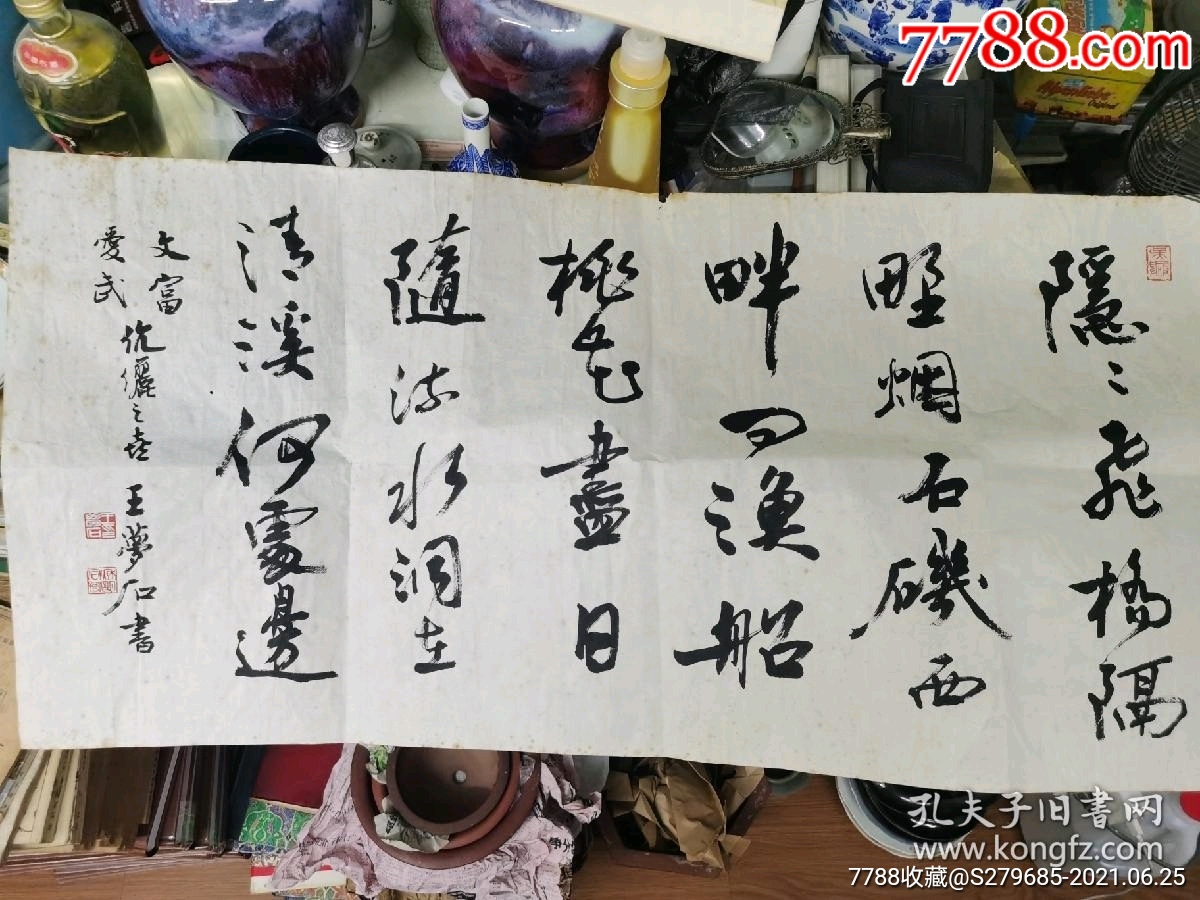 隱〻飛橋隔
野烟石磯西
畔问漁船
桃花盡日
隨流水洞在
清溪何處邊
文富
愛武
伉儷之喜 王夢石書
7788.com
孔夫子旧书网
www.kongfz.com
7788收藏@S279685-2021.06.25